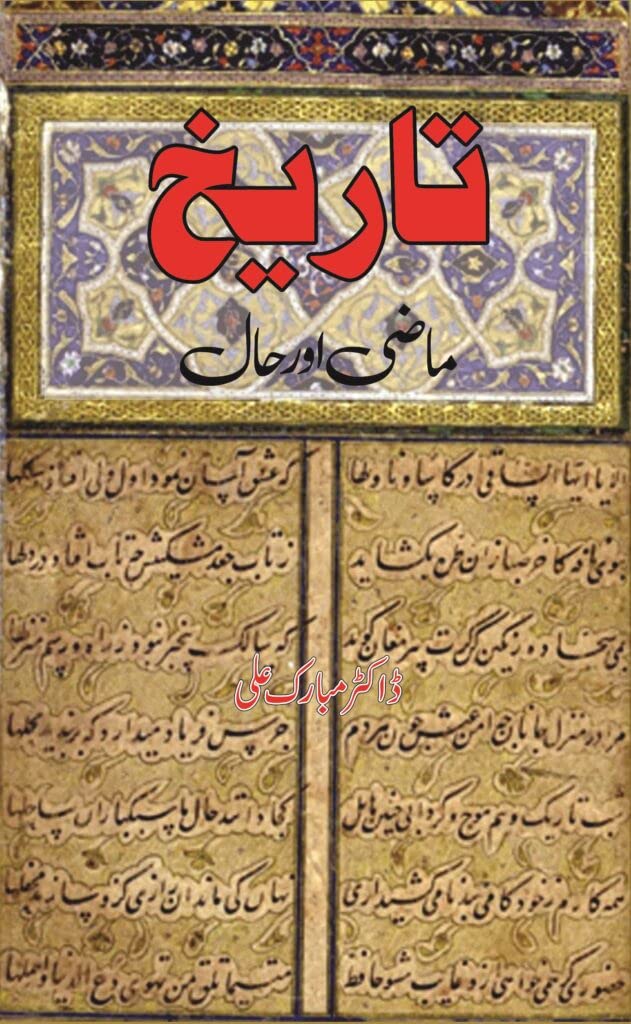 تاریخ
ماضی اور حال
الا یا ایها الساقی ادر کاسا و ناولها که عشق آسان نمود اول ولی افتاد مشکلها
ببوی نافه کاخر صبا زان طره بگشاید ز تاب جعد مشکینش چه تاب افتاد در دلها
بمی سجاده رنگین کن گرت پیر مغان گوید که سالک بیخبر نبود ز راه و رسم منزلها
ڈاکٹر مبارک علی
مرا در منزل جانان چه امن عیش چون هردم جرس فریاد میدارد که بربندید محملها
شب تاریک و بیم موج و گردابی چنین هایل کجا دانند حال ما سبکباران ساحلها
همه کارم ز خود کامی ببدنامی کشید آری نهان کی ماند آن رازی کزو سازند محفلها
حضوری گر همی خواهی ازو غایب مشو حافظ متی ما تلق من تهوی دع الدنیا و اهملها